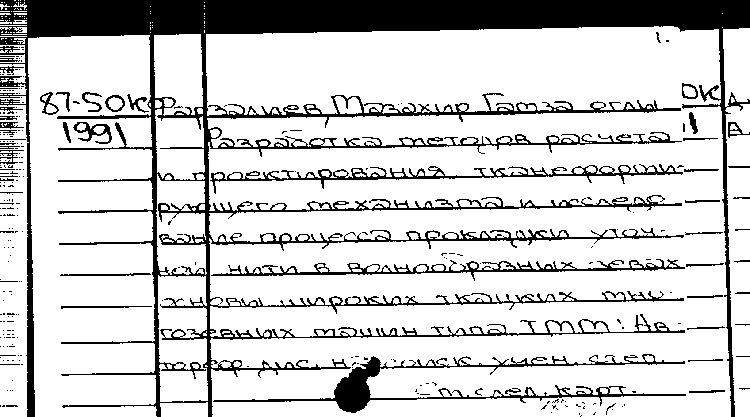 1.
87-50К Фарзалиев, Мазахир Гамза оглы ОК Д
1991 Разработка методов расчета 1 В
и проектирования тканеформи-
рующего механизма и исследо
вание процесса прокладки уточ-
ной нити в волнообразных зевах
основы широких ткацких мно-
гозевных машин типа ТММ: Ав-
тореф. дис. на соиск. учен. степ.
См. след. карт.